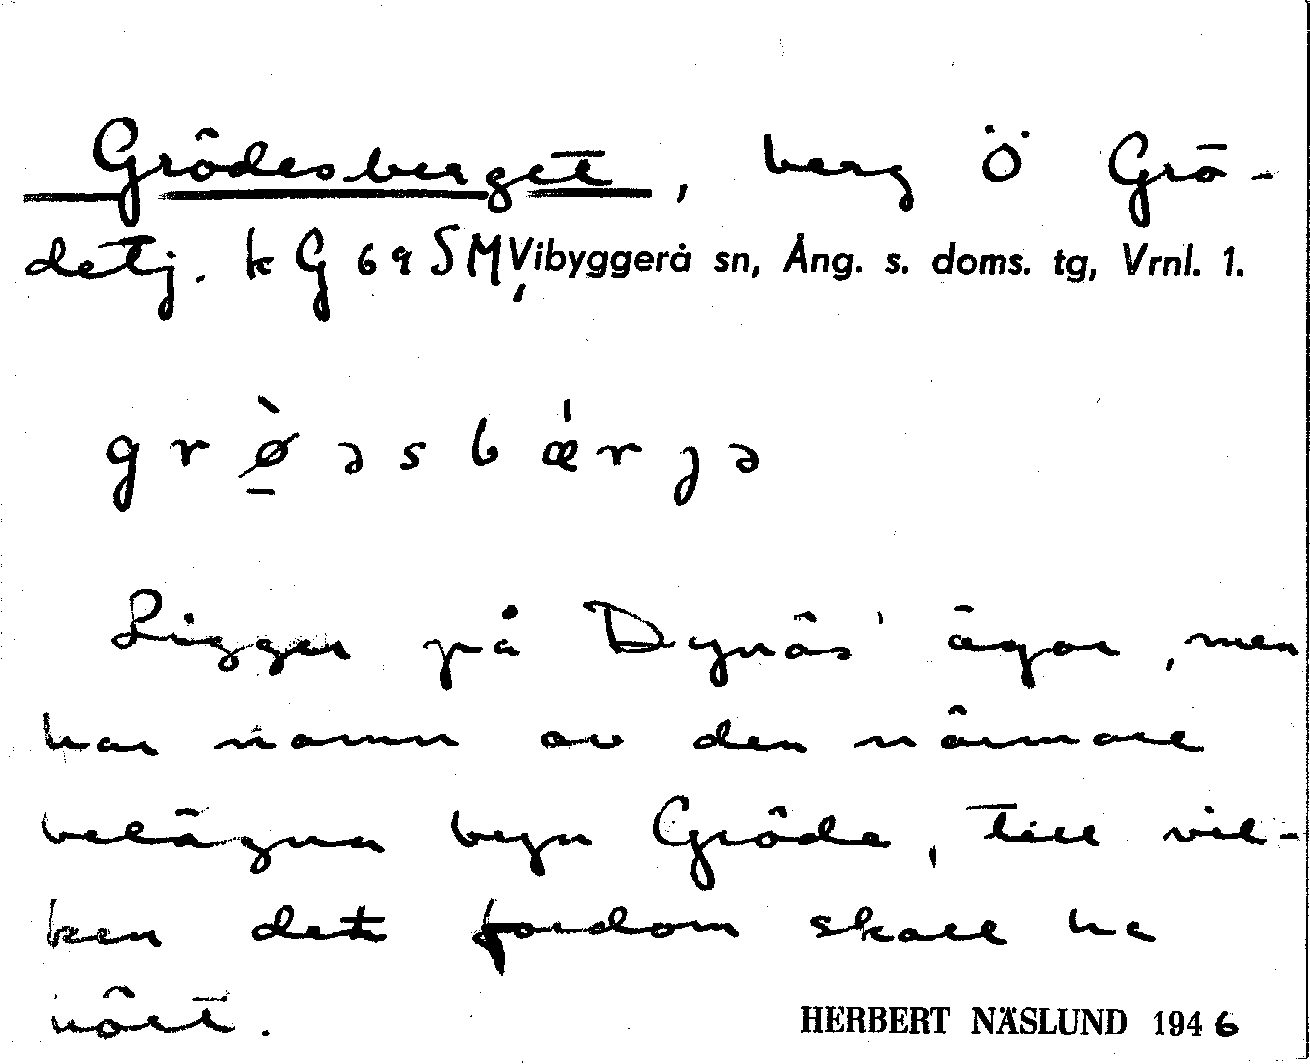 Grödesberget, berg Ö Grö-
detj. k G 69 SM, Vibyggerå sn, Ång. s. doms. tg, Vrnl. 1.
grø̠̀əsbǽrjə
Ligger på Dynäs' ägor, men
har namn av den närmare
belägna byn Gröde, till vil-
ken det fordom skall ha
hört.
HERBERT NÄSLUND 1946